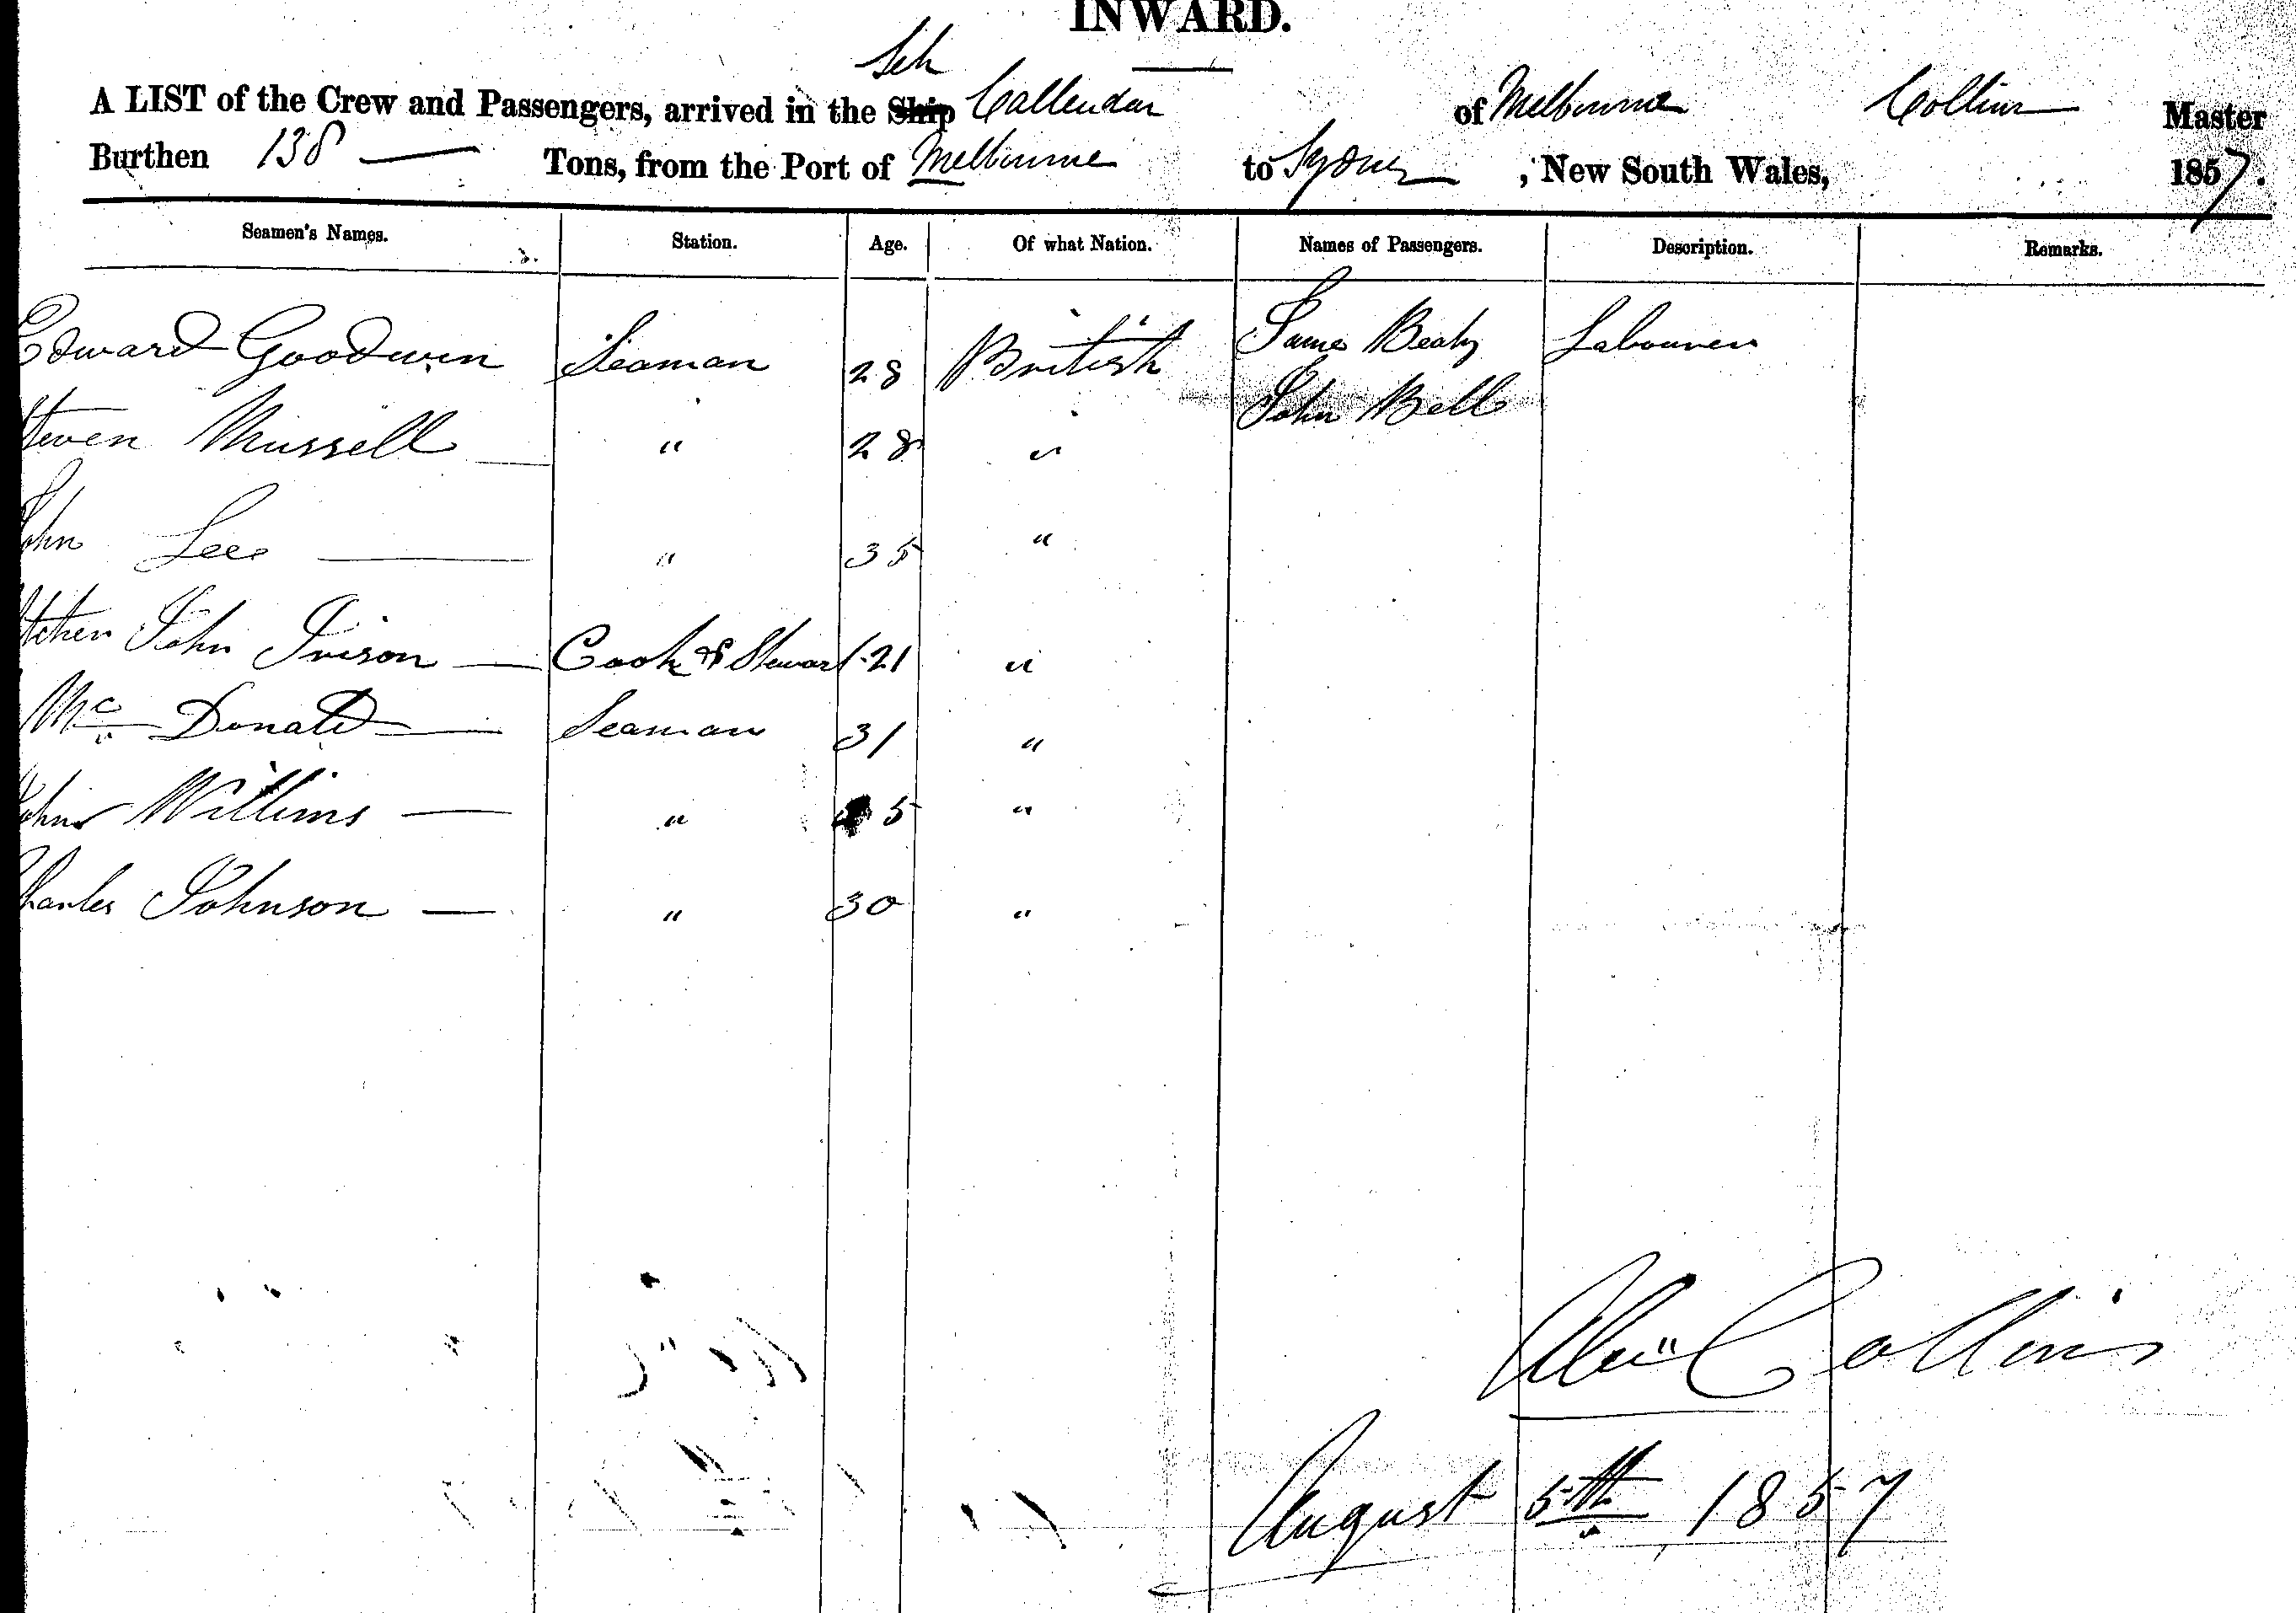 INWARD.
Sch
A LIST of the Crew and Passengers, arrived in the Ship Callendar of Melbourne Collins Master
Burthen 138 — Tons, from the Port of Melbourne to Sydney, New South Wales, 1857.
Seamen's Names. Station. Age. Of what Nation. Names of Passengers. Description. Remarks.
Edward Goodwin Seaman 28 British James Beaty Labourer
John Bell
Steven Mussell — " 28 "
John Lee — " 35 "
John Ivison — Cook & Steward 21 "
Mc Donald — Seaman 31 "
John Willims — " 45 "
Charles Johnson — " 30 "
Collins
August 5th 1857